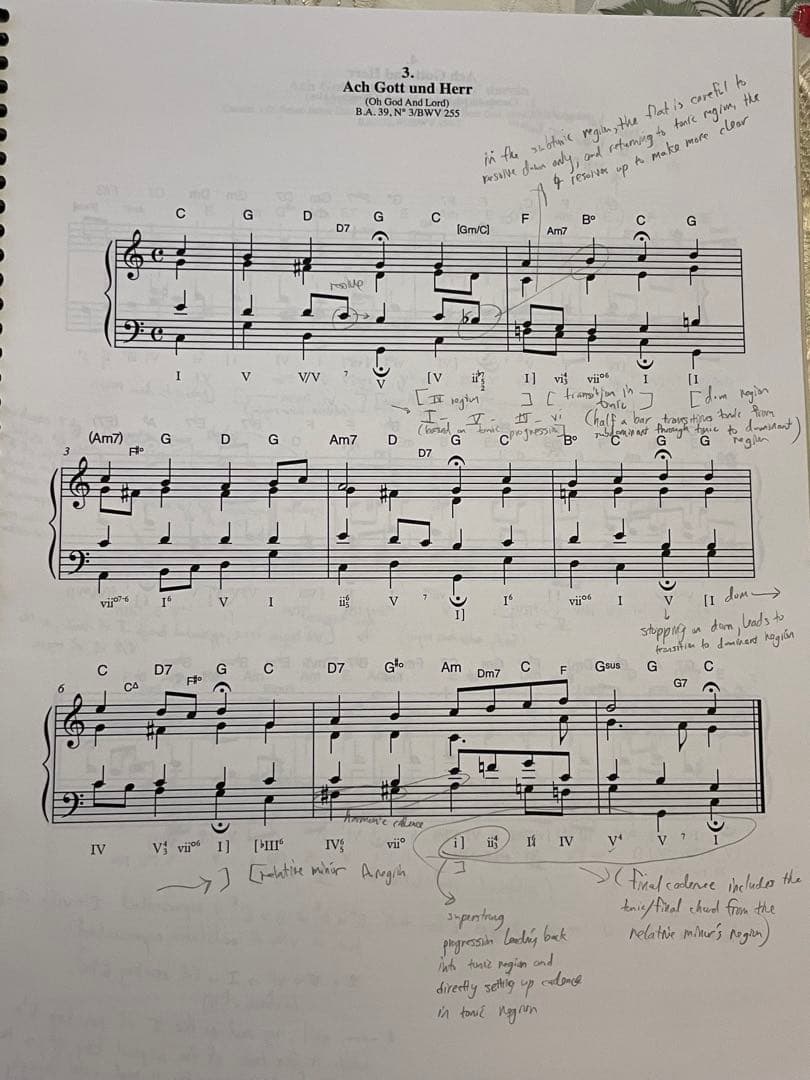 3.
Ach Gott und Herr
(Oh God And Lord)
B.A. 39, N° 3/BWV 255
in the subtonic region, the flat is careful to
resolve down only, and returning to tonic region, the
4 resolves up to make more clear
C G D D7 G C [Gm/C] F Am7 B° C G
resolve
I V V/V 7 V [V ii I] vi vii°6 I [I
[IV region ] [transition in tonic ] [dom region
I - V - IV - vi
(based on tonic progression]
(half a bar transitions tonic from
subdominant through tonic to dominant
region)
(Am7) F#° G D G Am7 D D7 G C B° C G G
3
vii°7-6 I6 V I ii6/5 V 7 I] I6 vii°6 I V [I dom
stopping on dom, leads to
transition to dominant region
C C∆ D7 F#° G C D7 G#° Am Dm7 C F Gsus G G7 C
6
harmonic cadence
IV V4/3 vii°6 I] [♭III6 IV6/5 vii° i] ii4/3 I6/4 IV V4 V 7 I
] [relative minor A region ]
superstrong
progression leading back
into tonic region and
directly setting up cadence
in tonic region
(final cadence includes the
tonic/final chord from the
relative minor's region)